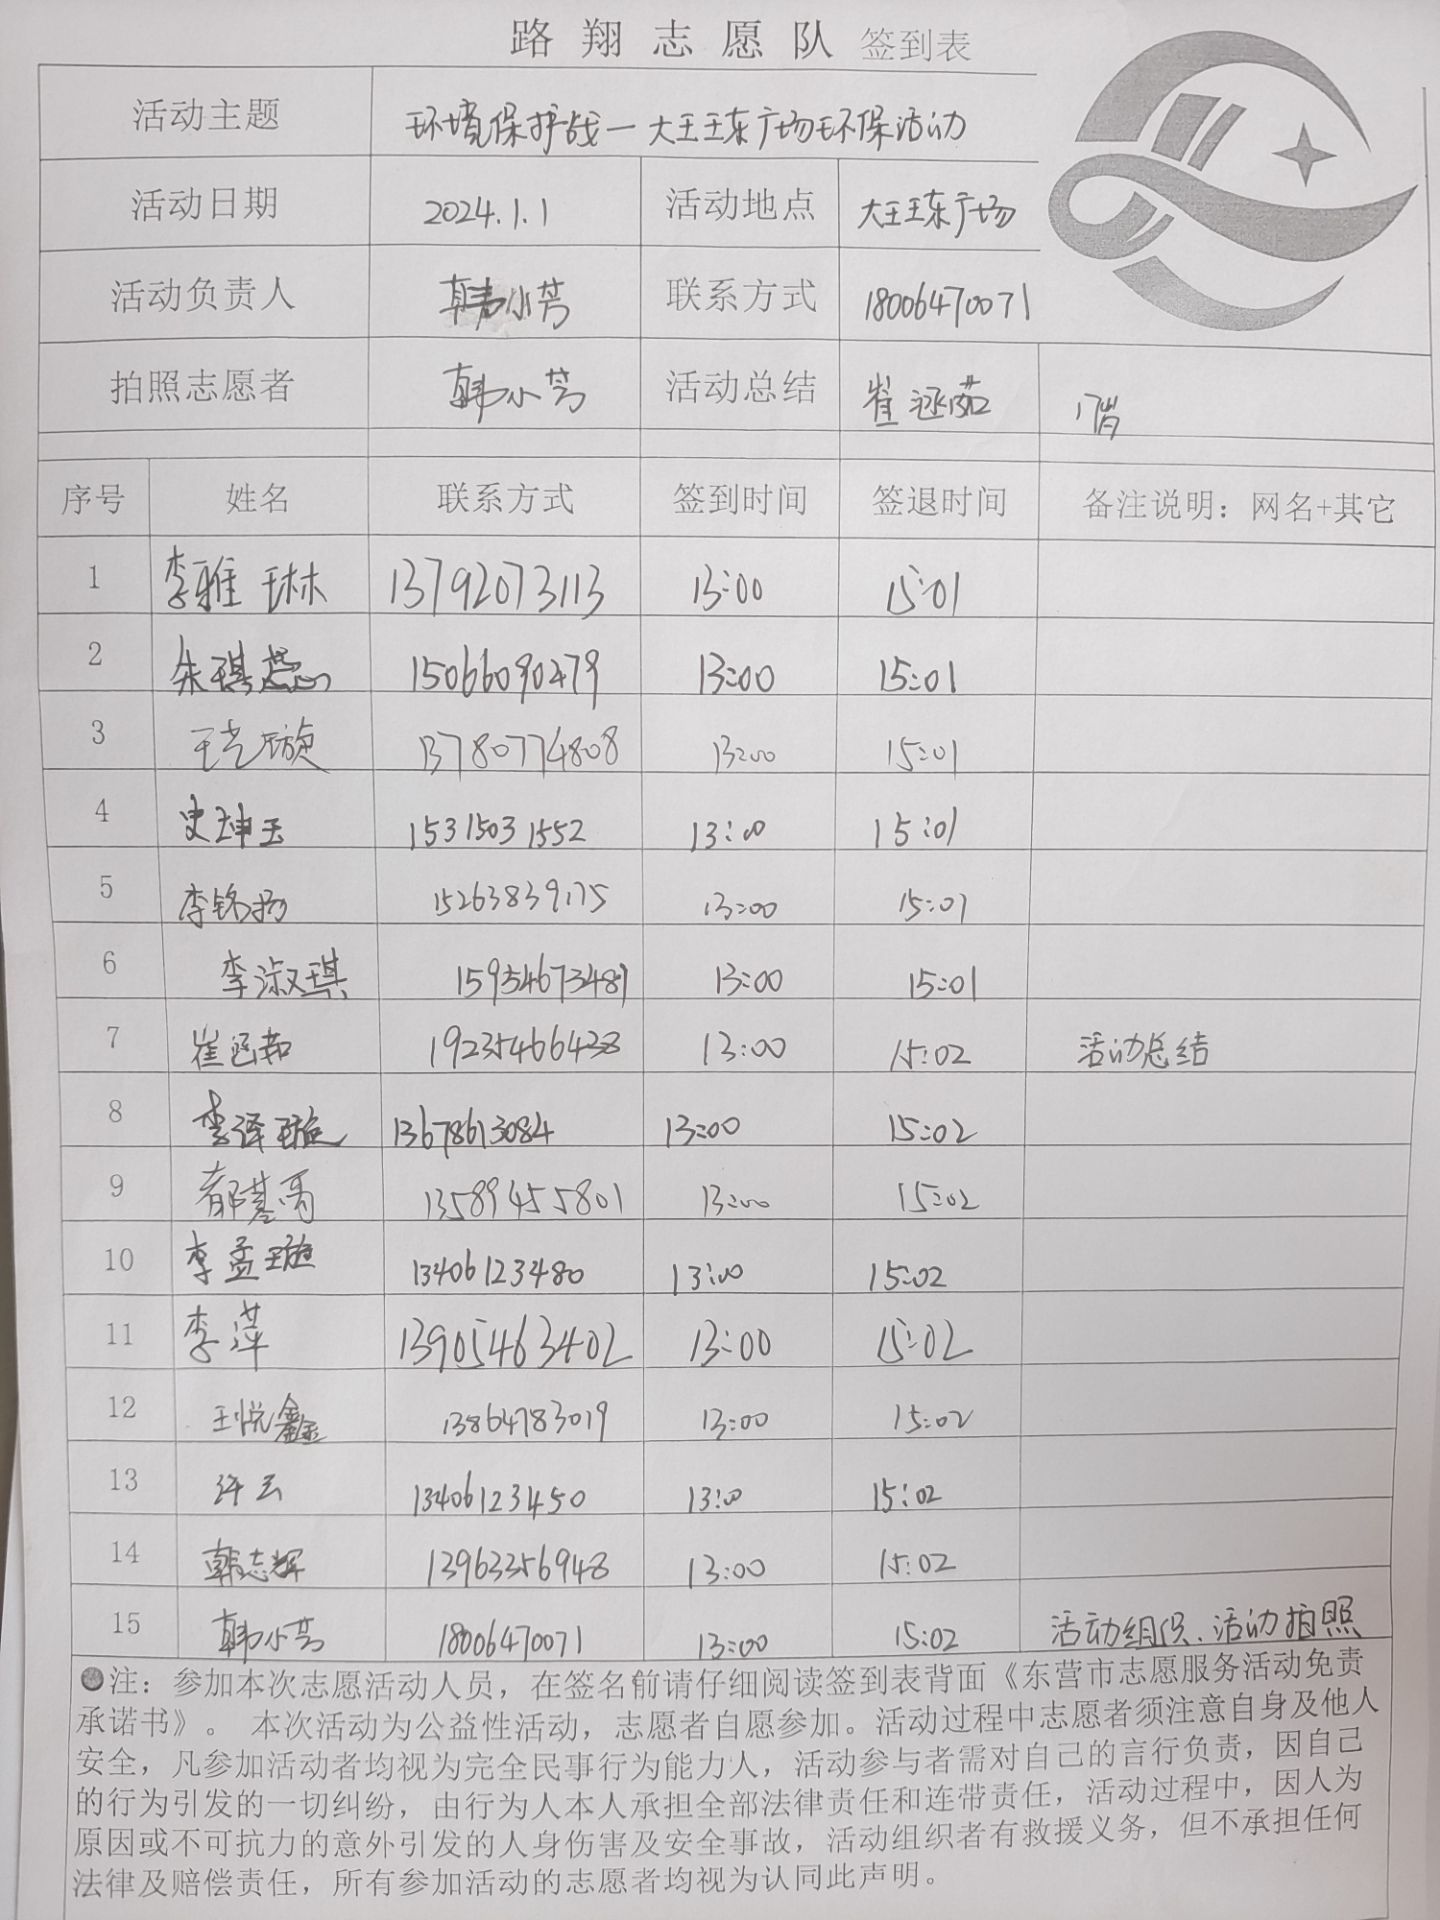 路翔志愿队 签到表
活动主题 环境保护战—大王王东广场环保活动
活动日期 2024.1.1 活动地点 大王王东广场
活动负责人 韩小芳 联系方式 18006470071
拍照志愿者 韩小芳 活动总结 崔涵茹 17岁
序号 姓名 联系方式 签到时间 签退时间 备注说明：网名+其它
1 李雅琳 13792073113 13:00 15:01
2 朱琪蕊 15066090279 13:00 15:01
3 王艺璇 13780774808 13:00 15:01
4 史坤玉 15315031552 13:00 15:01
5 李铭扬 15263839175 13:00 15:01
6 李淑琪 15954673481 13:00 15:01
7 崔涵茹 19235466438 13:00 15:02 活动总结
8 李泽璇 13678613084 13:00 15:02
9 13589455801 13:00 15:02
10 李孟璇 13406123480 13:00 15:02
11 李萍 13905463402 13:00 15:02
12 王悦鑫 13864783019 13:00 15:02
13 许云 13406123450 13:00 15:02
14 韩志辉 13963356948 13:00 15:02
15 韩小芳 18006470071 13:00 15:02 活动组织、活动拍照
●注：参加本次志愿活动人员，在签名前请仔细阅读签到表背面《东营市志愿服务活动免责
承诺书》。 本次活动为公益性活动，志愿者自愿参加。活动过程中志愿者须注意自身及他人
安全，凡参加活动者均视为完全民事行为能力人，活动参与者需对自己的言行负责，因自己
的行为引发的一切纠纷，由行为人本人承担全部法律责任和连带责任，活动过程中，因人为
原因或不可抗力的意外引发的人身伤害及安全事故，活动组织者有救援义务，但不承担任何
法律及赔偿责任，所有参加活动的志愿者均视为认同此声明。